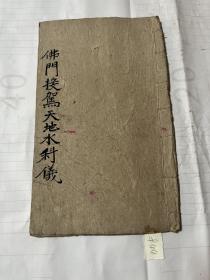 佛門接駕天地水科儀